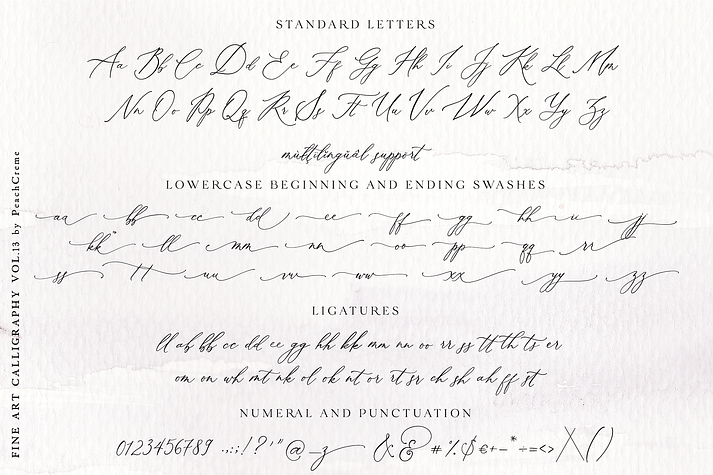 STANDARD LETTERS
Aa Bb Cc Dd Ee Ff Gg Hh Ii Jj Kk Ll Mm
Nn Oo Pp Qq Rr Ss Tt Uu Vv Ww Xx Yy Zz
multilingual support
LOWERCASE BEGINNING AND ENDING SWASHES
aa bb cc dd ee ff gg hh ii jj
kk ll mm nn oo pp qq rr
ss tt uu vv ww xx yy zz
LIGATURES
ll ab bb cc dd ee gg hh kk mm nn oo rr ss tt th ts er
om on wh mt nk ol ok nt or rt sr ch sh ah ff st
NUMERAL AND PUNCTUATION
0123456789 .,:;!?'"@-_ & # % $ €+-*÷=<> \/()
FINE ART CALLIGRAPHY VOL.13 by PeachCreme